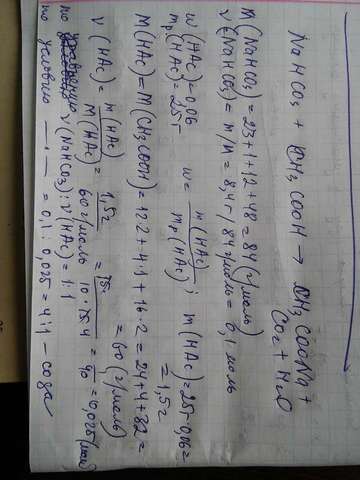 NaHCO₃ + CH₃COOH → CH₃COONa +
CO₂ + H₂O
M(NaHCO₃) = 23+1+12+48 = 84 (г/моль)
ν(NaHCO₃) = m/M = 8,4г/84г/моль = 0,1 моль
w(HAc) = 0,06
mр(HAc) = 25г w = m(HAc)/mр(HAc); m(HAc) = 25·0,06 =
= 1,5г
M(HAc) = M(CH₃COOH) = 12·2 + 4·1 + 16·2 = 24+4+32 =
= 60 (г/моль)
ν(HAc) = m(HAc)/M(HAc) = 1,5г/60г/моль = = 0,025 (моль)
по ν(NaHCO₃):ν(HAc) = 1:1
по условию —·— = 0,1 : 0,025 = 4:1 – сода